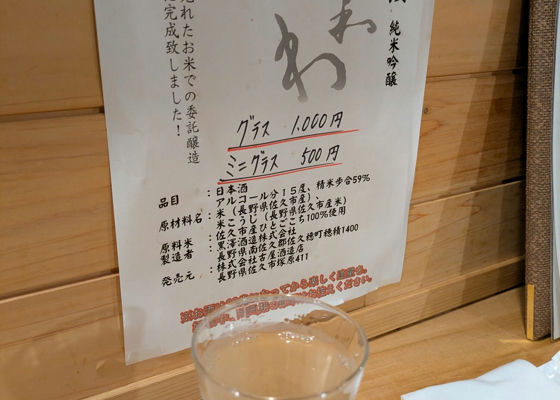 純米吟醸
れたお米での委託醸造
完成致しました！
グラス 1,000円
ミニグラス 500円
品目：日本酒
アルコール分15度、精米歩合59%
原材料名：米（長野県佐久市産）、
米こうじ（長野県佐久市産米）
原料米：佐久市産ひとごこち100%使用
製造者：黒澤酒造株式会社
長野県南佐久郡佐久穂町穂積1400
発売元：株式会社古屋酒造店
長野県佐久市塚原411